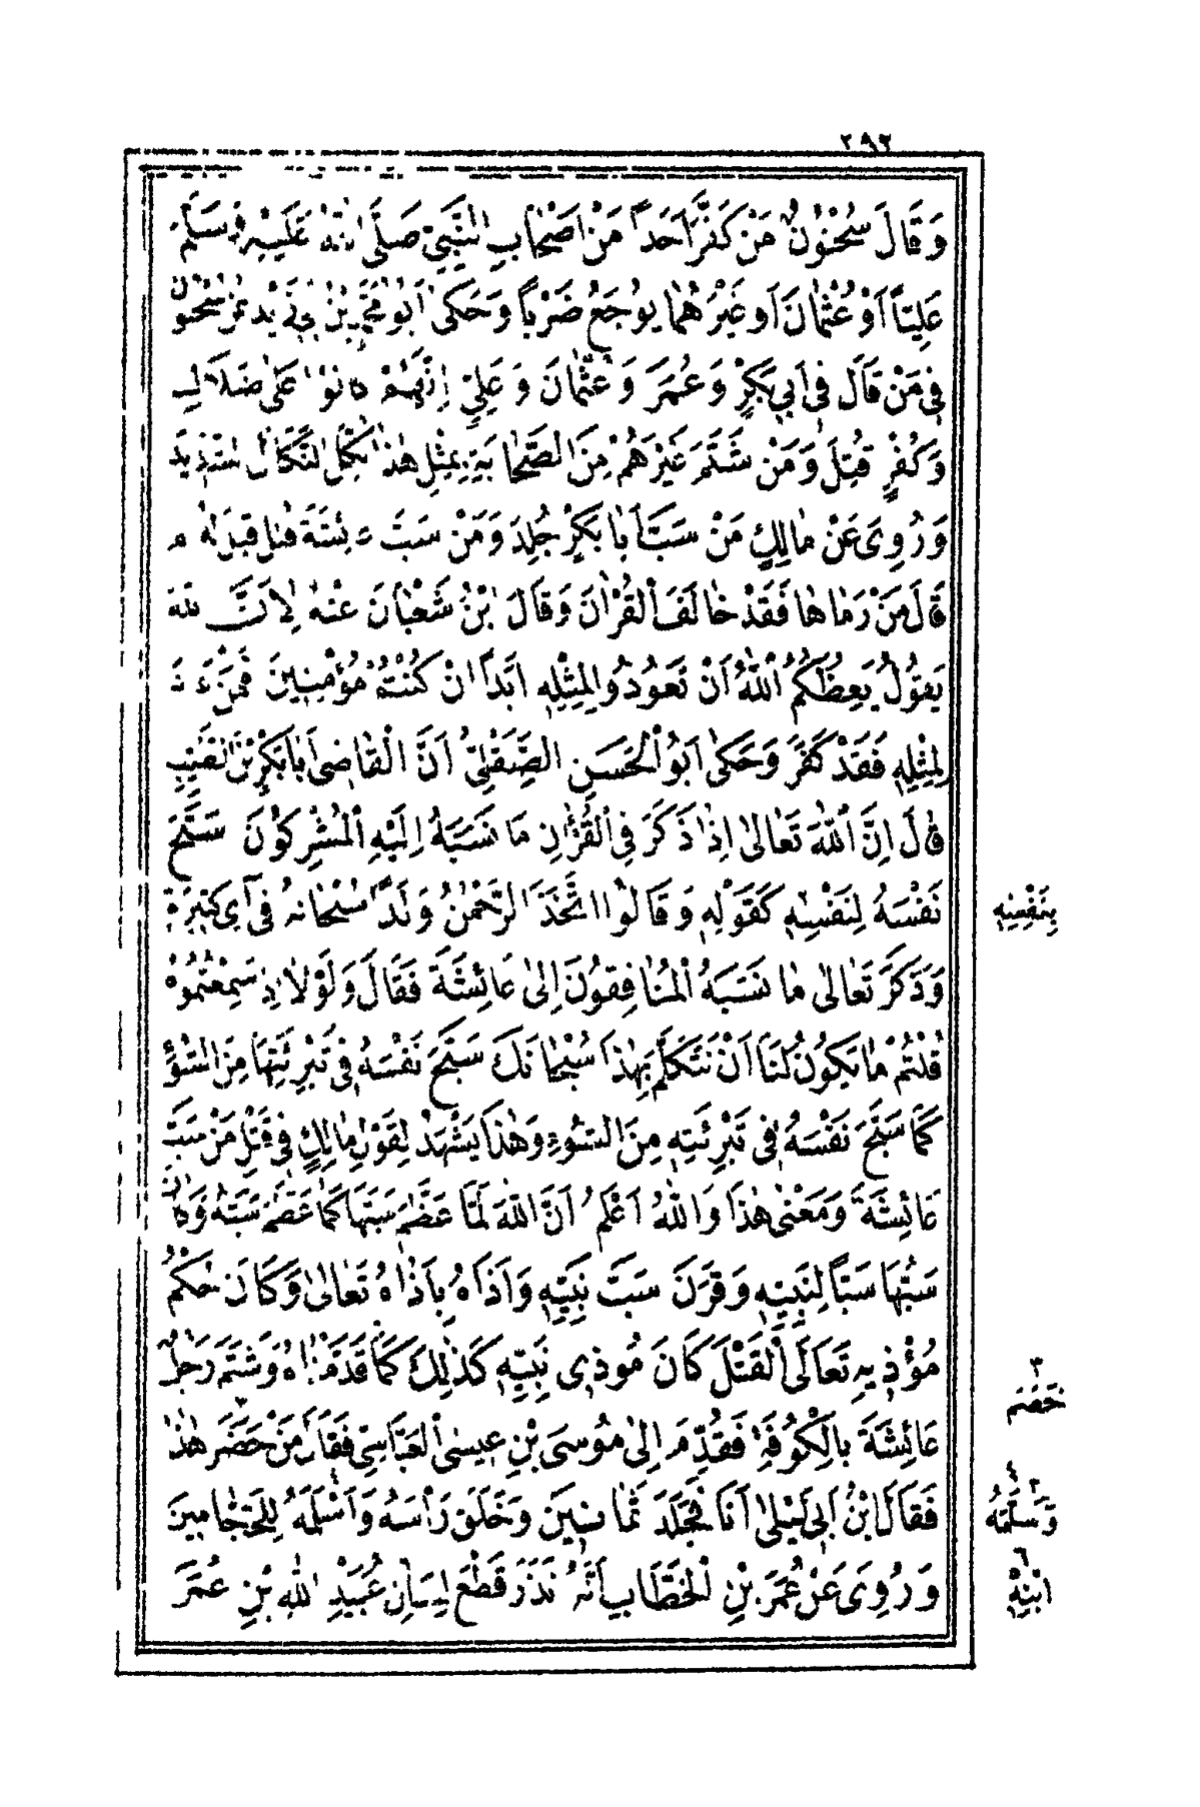 ٢٩٢
وَقَالَ سُحْنُونٌ مَنْ كَفَّرَ اَحَداً مِنْ اَصْحَابِ النَّبِيِّ صَلَّى اللهُ عَلَيْهِ وَسَلَّمَ
عَلِيّاً اَوْ عُثْمَانَ اَوْ غَيْرَهُمَا يُوجَعُ ضَرْباً وَحَكَى اَبُو مُحَمَّدِ بْنُ اَبِى زَيْدٍ عَنْ سُحْنُونٍ
فِى مَنْ قَالَ فِى اَبِى بَكْرٍ وَعُمَرَ وَعُثْمَانَ وَعَلِيٍّ اِنَّهُمْ كَانُوا عَلَى ضَلَالٍ
وَكُفْرٍ قُتِلَ وَمَنْ شَتَمَ غَيْرَهُمْ مِنَ الصَّحَابَةِ بِمِثْلِ هٰذَا نُكِّلَ النَّكَالَ الشَّدِيدَ
وَرُوِىَ عَنْ مَالِكٍ مَنْ سَبَّ اَبَا بَكْرٍ جُلِدَ وَمَنْ سَبَّ عَائِشَةَ قُتِلَ قِيلَ لَهُ لِمَ
قَالَ مَنْ رَمَاهَا فَقَدْ خَالَفَ الْقُرْاٰنَ وَقَالَ ابْنُ شَعْبَانَ عَنْهُ لِاَنَّ اللهَ
يَقُولُ يَعِظُكُمُ اللهُ اَنْ تَعُودُوا لِمِثْلِهِ اَبَداً اِنْ كُنْتُمْ مُؤْمِنِينَ فَمَنْ عَادَ
لِمِثْلِهِ فَقَدْ كَفَرَ وَحَكَى اَبُو الْحَسَنِ الصِّقِلِّيُّ اَنَّ الْقَاضِىَ اَبَا بَكْرِ بْنَ الطَّيِّبِ
قَالَ اِنَّ اللهَ تَعَالَى اِذَا ذَكَرَ فِى الْقُرْاٰنِ مَا نَسَبَهُ اِلَيْهِ الْمُشْرِكُونَ سَبَّحَ
نَفْسَهُ لِنَفْسِهِ كَقَوْلِهِ وَقَالُوا اتَّخَذَ الرَّحْمٰنُ وَلَداً سُبْحَانَهُ فِى آىٍ كَثِيرَةٍ
وَذَكَرَ تَعَالَى مَا نَسَبَهُ الْمُنَافِقُونَ اِلَى عَائِشَةَ فَقَالَ وَلَوْلَا اِذْ سَمِعْتُمُوهُ
قُلْتُمْ مَا يَكُونُ لَنَا اَنْ نَتَكَلَّمَ بِهٰذَا سُبْحَانَكَ سَبَّحَ نَفْسَهُ فِى تَبْرِئَتِهَا مِنَ السُّوْءِ
كَمَا سَبَّحَ نَفْسَهُ فِى تَبْرِئَتِهِ مِنَ السُّوْءِ وَهٰذَا يَشْهَدُ لِقَوْلِ مَالِكٍ فِى قَتْلِ مَنْ سَبَّ
عَائِشَةَ وَمَعْنٰى هٰذَا وَاللهُ اَعْلَمُ اَنَّ اللهَ لَمَّا عَظَّمَ سَبَّهَا كَمَا عَظَّمَ سَبَّهُ وَكَانَ
سَبُّهَا سَبّاً لِنَبِيِّهِ وَقَرَنَ سَبَّ نَبِيِّهِ وَاَذَاهُ بِاَذَاهُ تَعَالَى وَكَانَ حُكْمُ
مُؤْذِيهِ تَعَالَى الْقَتْلَ كَانَ مُوذِى نَبِيِّهِ كَذٰلِكَ كَمَا قَدَّمْنَاهُ وَشَتَمَ رَجُلٌ
عَائِشَةَ بِالْكُوفَةِ فَقُدِّمَ اِلَى مُوسَى بْنِ عِيسَى الْعَبَّاسِيِّ فَقَالَ مَنْ حَضَرَ هٰذَا
فَقَالَ ابْنُ اَبِى لَيْلٰى اَنَا فَجَلَدَ ثَمَانِينَ وَحَلَقَ رَأْسَهُ وَاَسْلَمَهُ لِلْحَجَّامِينَ
وَرُوِىَ عَنْ عُمَرَ بْنِ الْخَطَّابِ اَنَّهُ نَذَرَ قَطْعَ لِسَانِ عُبَيْدِ اللهِ بْنِ عُمَرَ
بِنَفْسِهِ
٣
خَصْمَ
٤ ٣
وَسَلَّمَهُ
٦
ابْنِهِ